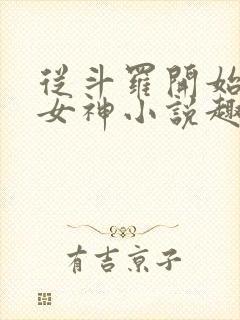 從斗羅開始
女神小說趣
有吉京子